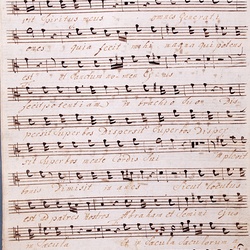 est Spiritus meus omnes Generati
ones quia fecit mihi magna qui potens
est et Sanctum nomen Ejus
fecit potentiam in brachio Suo Dis
persit Superbos Dispersit Superbos Disper
sit Superbos mente Cordis Sui
bonis Dimisit inanes Sicut locutus
est ad patres nostros Abraham et Semini
in Saecula Saecula Saeculorum